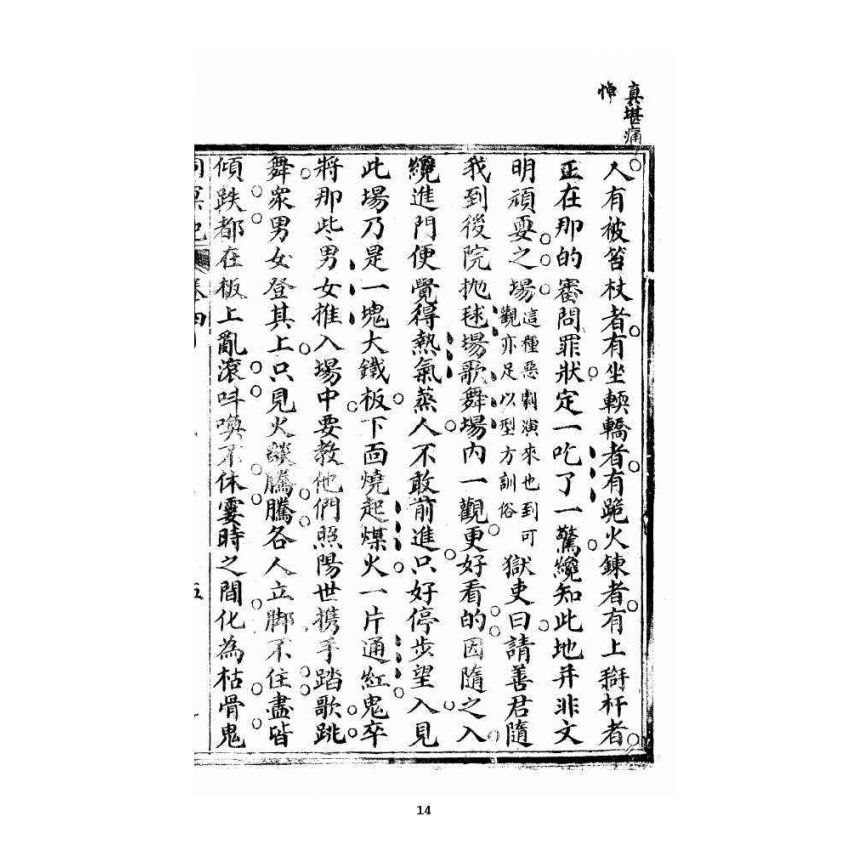 真堪痛
悼
人有被笞杖者有坐輭轎者有跪火鍊者有上搿杆者
正在那的審問罪狀定一吃了一驚纔知此地并非文
明頑耍之場這種惡劇演來也到可觀亦足以型方訓俗獄吏曰請善君隨
我到後院拋毬場歌舞場内一觀更好看的因隨之入
纔進門便覺得熱氣蒸人不敢前進只好停步望入見
此場乃是一塊大鐵板下面燒起煤火一片通紅鬼卒
將那些男女推入場中要教他們照陽世攜手踏歌跳
舞衆男女登其上只見火燄騰騰各人立脚不住盡皆
傾跌都在板上亂滾呌喚不休霎時之間化為枯骨鬼
洞冥記 卷四 五
14